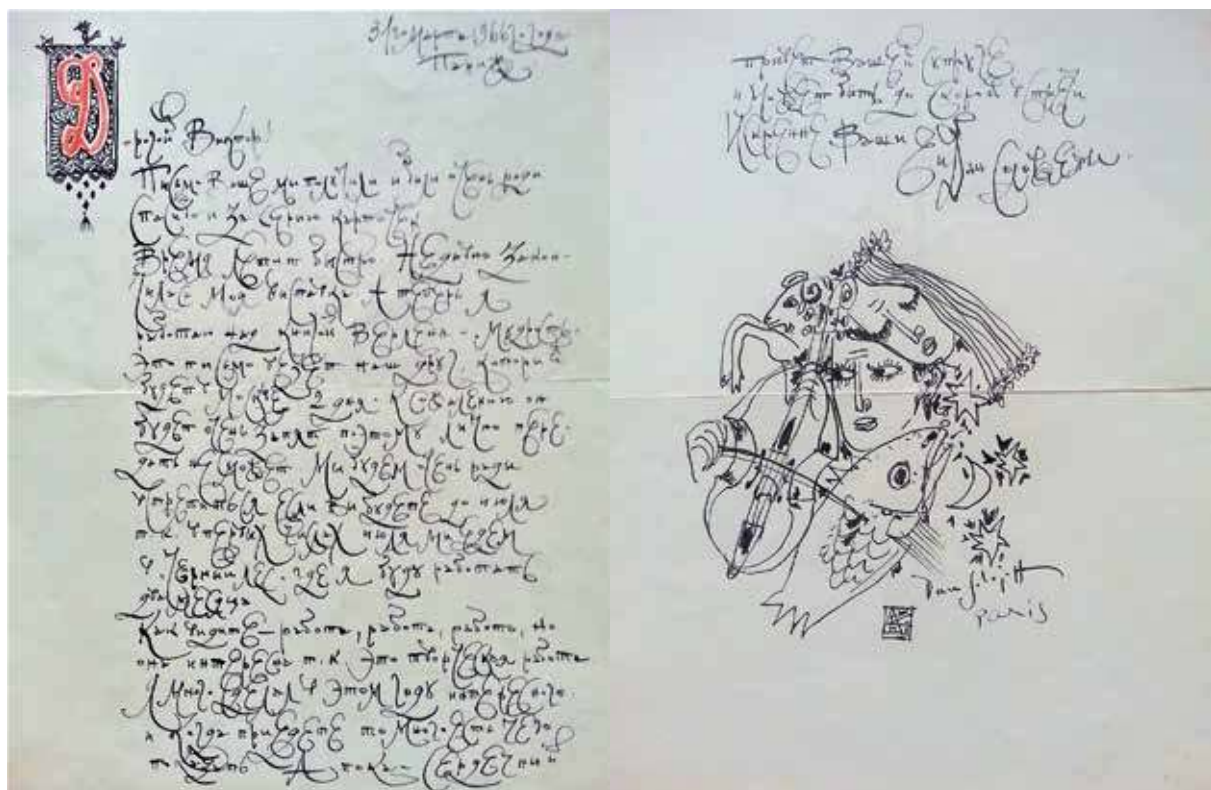 31го марта 1966го года
Париж
Д
о
-рогой Виктор!
Письмо Ваше мы получили и были очень рады
Спасибо и за серию карточек
Время летит быстро. Недавно закон-
чилась моя выставка. А теперь я
работаю над книгой Верлена - Мудрость.
Это письмо везет наш друг, который
будет в Москве 2 дня. К сожалению он
будет очень занят поэтому лично пере-
дать не сможет. Мы будем очень рады
встретиться если вы будете до июля
т.к. в первых числах июля мы едем
в Черный лес. где я буду работать
два месяца
Как видите - работа, работа, работа, но
она интересна т.к. это творческая работа.
Я много сделал в этом году интересного.
и когда приедете то много есть чего
показать. А пока - Сердечный
привет Вашей супруге
и может быть, до скорой встречи
Искренне Ваши
paris